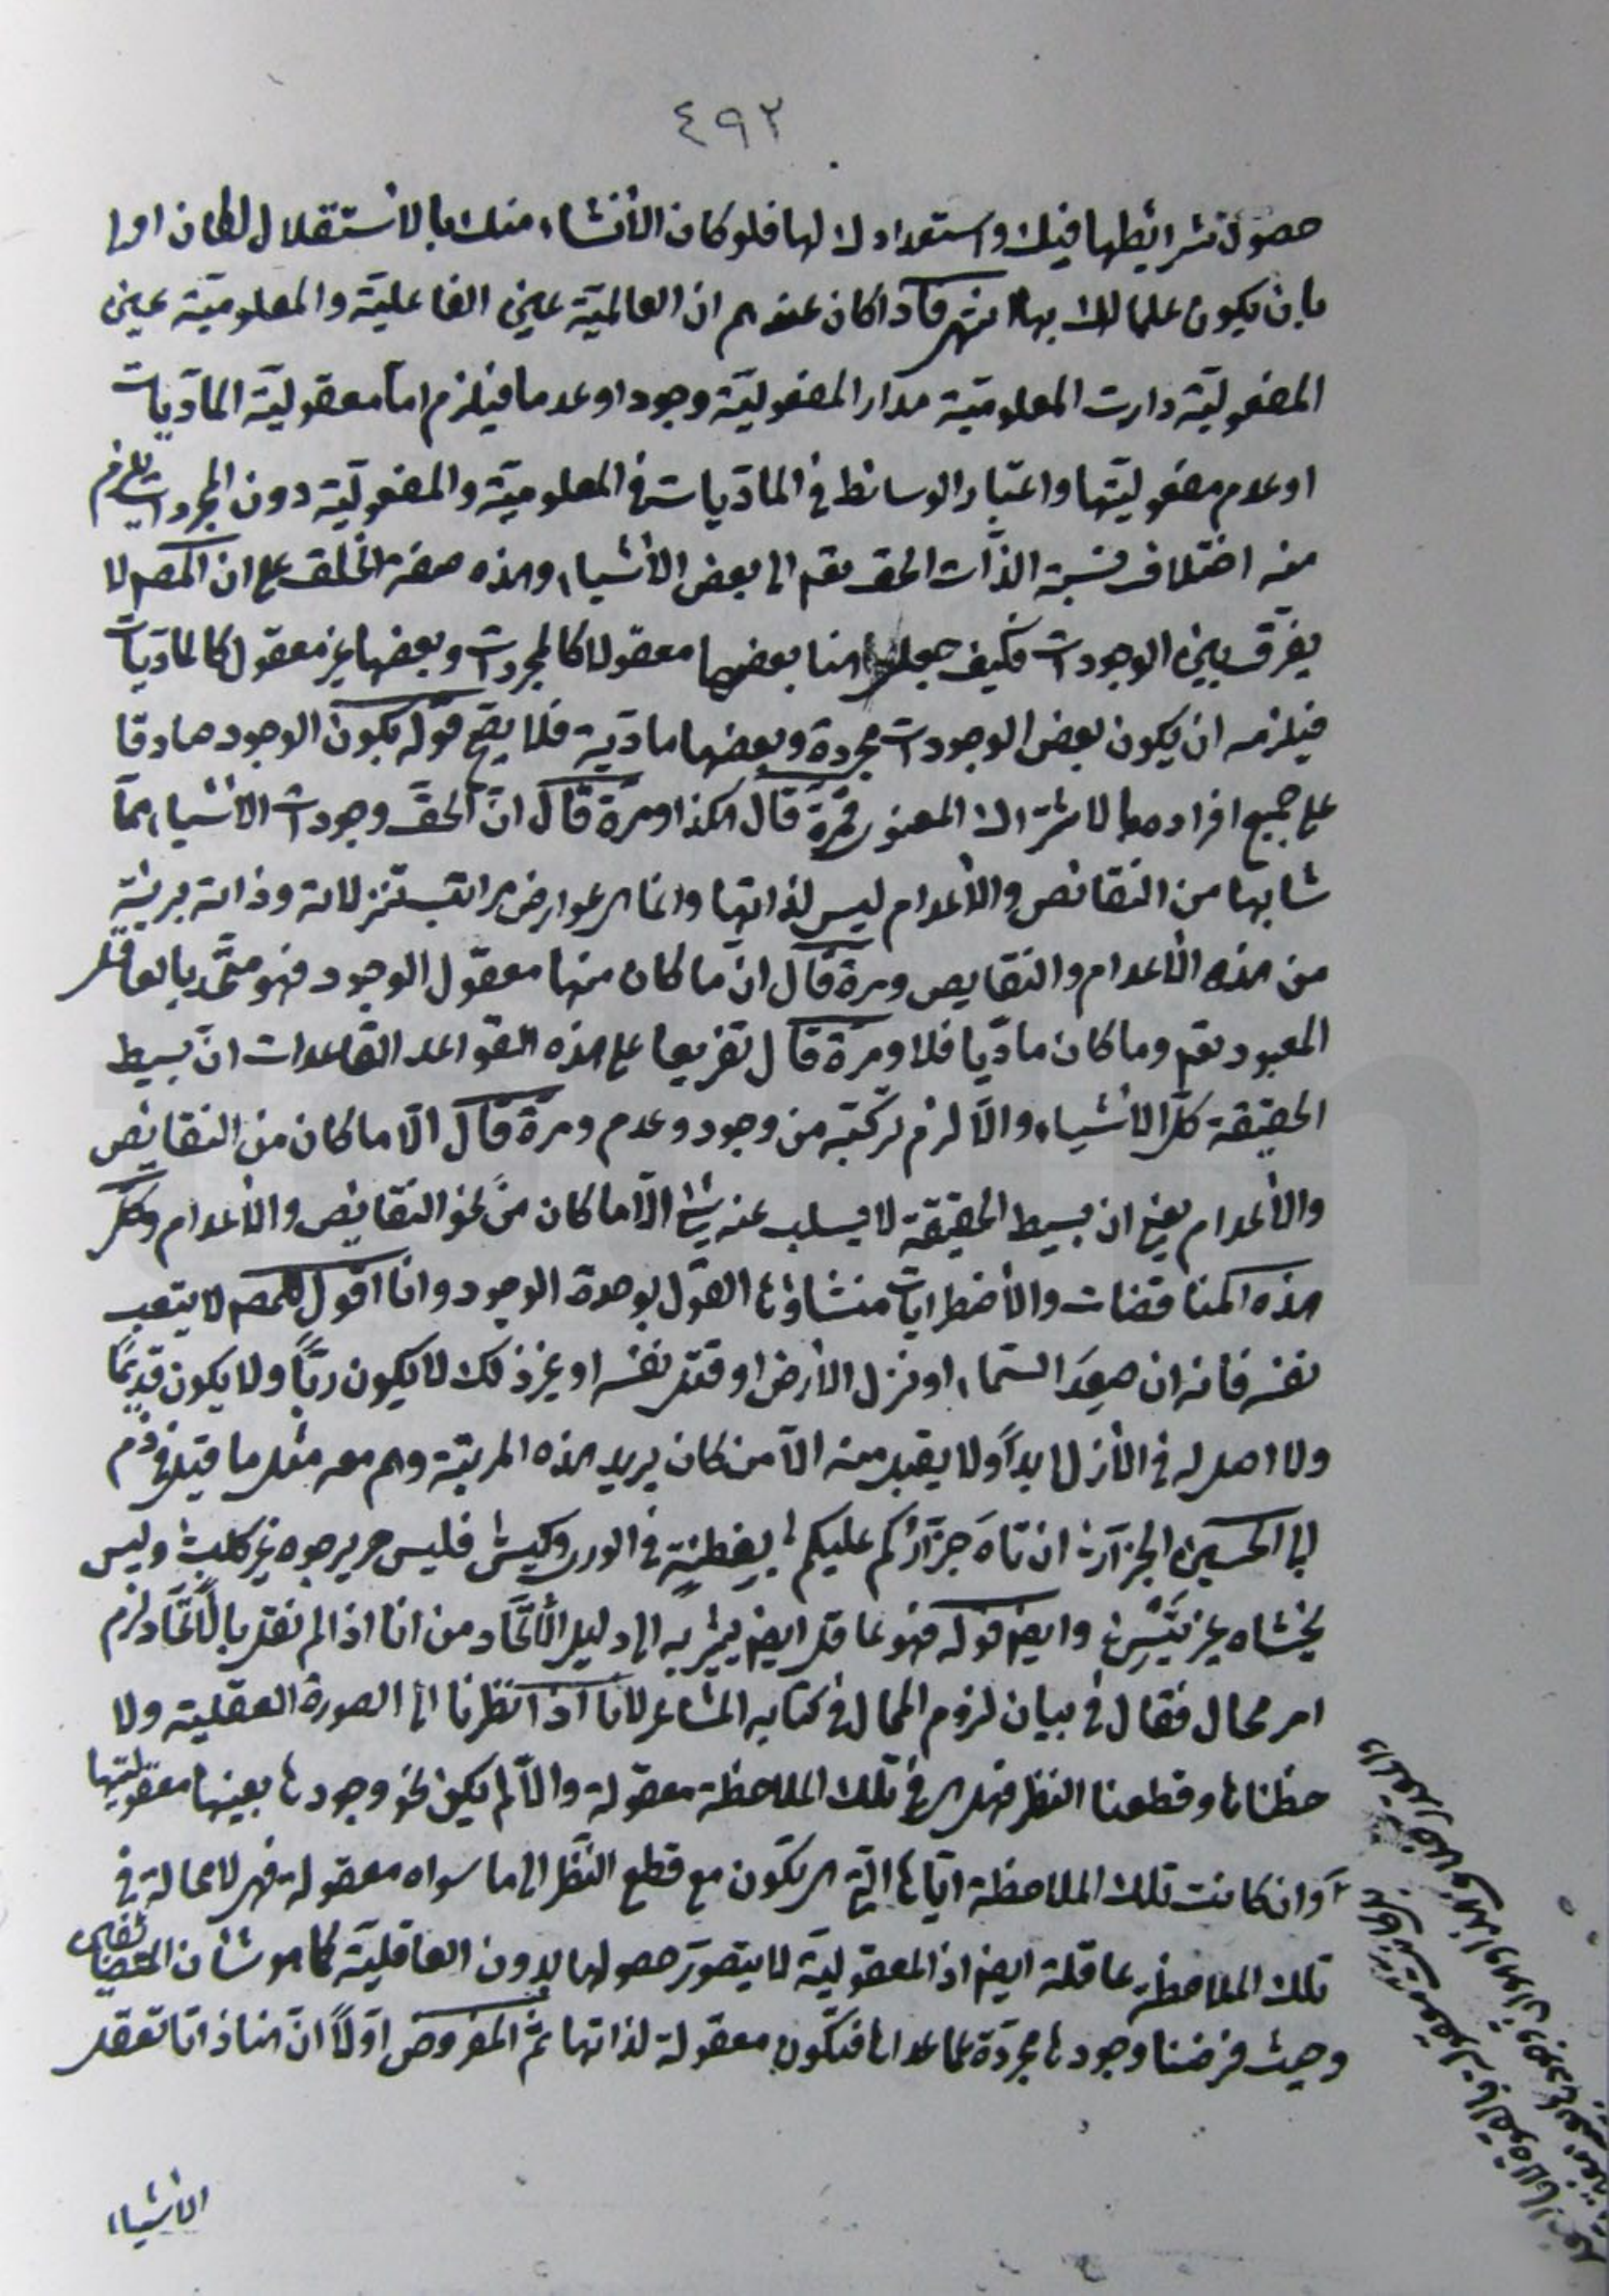 ٤٩٢
حصول شرائطها فيك واستعدادك لها فلو كان الأنشاء منك بالأستقلال لكان اولى
بان يكون علما لك بها انتهى فآذا كان عندهم ان العالميّة عين الفاعليّة والمعلوميّة عين
المفعوليّة دارت المعلوميّة مدار المفعوليّة وجودا وعدما فيلزم امّا معقوليّة المادّيات
او عدم مفعوليّتها واعتبار الوسائط في المادّيات في المعلوميّة والمفعوليّة دون المجردات يلزم
منه اختلاف نسبة الذّات الحق تعم الى بعض الأشياء وهذه صفة الخلق على ان المصم لا
يفرّق بين الوجودات فكيف جعل هنا بعضها معقولا كالمجردات وبعضها غير معقول كالماديّات
فيلزمه ان يكون بعض الوجودات مجردة وبعضها مادّية فلا يصحّ قوله بكون الوجود صادقا
على جميع افراده بالاشتراك المعنوى فمرّة قال هكذا ومرّة قال انّ الحقّ وجودات الاشياء ممّا
شابها من النقائص والأعدام ليس لذاتها وانما هي عوارض مراتب تنزلاته وذاته بريئة
من هذه الأعدام والنقايص ومرة قال انّ ما كان منها معقول الوجود فهو متّحد بالعاقل
المعبود تعم وما كان مادّيا فلا ومرّة قال تفريعا على هذه القواعد القاعدات انّ بسيط
الحقيقة كلّ الأشياء والّا لزم تركّبه من وجود وعدم ومرّة قال الّا ما كان من النقائص
والأعدام يعني ان بسيط الحقيقة لا يسلب عنه شئ الّا ما كان من نحو النقائص والأعدام وكلّ
هذه المناقضات والأضطرابات منشاؤها القول بوحدة الوجود وانا اقول للمصم لا يتعب
نفسه فانه ان صعد السّماء او نزل الأرض او قتل نفسه او غير ذلك لا يكون ربّاً ولا يكون قديمًا
ولا اصل له في الأزل ابداً ولا يقبل منه الّا من كان يريد هذه المرتبة وهم معه مثل ما قيل في ذم
ابى الحسين الجزّار ان تاهَ جزّاركم عليكم بفطنةٍ في الورى وكيسٍ فليس يرجوه غير كلبٍ وليس
يخشاه غير تيسٍ وايضم قوله فهو عاقل ايضم يشير به الى دليل الأتّحاد من انا اذا لم نقل بالأتّحاد لزم
امر محال فقال في بيان لزوم المحال في كتابه المشاعر لانا اذا نظرنا الى الصورة العقلية ولا
حظناها وقطعنا النظر فهل هي في تلك الملاحظة معقولة والّا لم يكن نحو وجودها بعينها معقوليّتها
وان كانت تلك الملاحظة ايّاها الّتي هي تكون مع قطع النّظر الى ما سواه معقولة فهي لا محالة في
تلك الملاحظة عاقلة ايضم اذ المعقوليّة لا يتصوّر حصولها بدون العاقليّة كما هو شأن المتضائفين
وحيث فرضنا وجودها مجرّدة عمّا عداها فتكون معقولة لذاتها ثمّ المفروض اوّلاً انّ هنا ذاتا تعقل
الأشياء